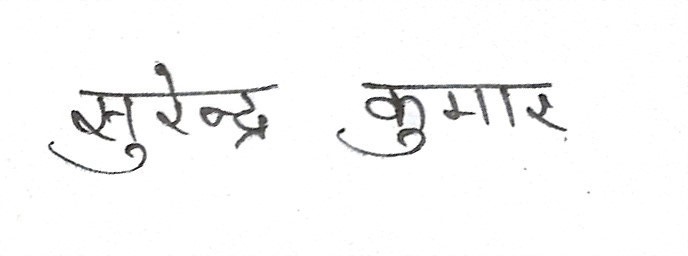 सुरेन्द्र कुमार